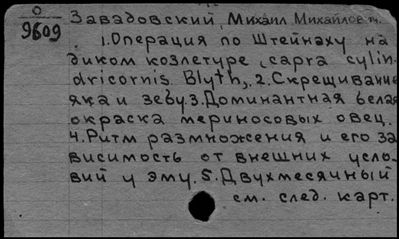 О
9609
Завадовский, Михаил Михайлович.
1.Операция по Штейнаху на
диком козлетуре (capra cylin-
dricornis Blyth). 2.Скрещивание
яка и зебу.3.Доминантная белая
окраска мериносовых овец.
4.Ритм размножения и его за
висимость от внешних усло-
вий у эму.5.Двухмесячный
см. след. карт.